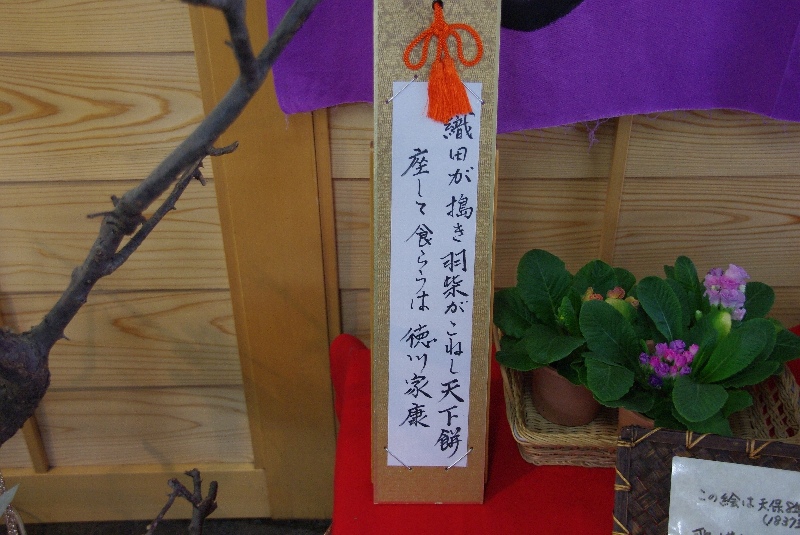 織田が搗き羽柴がこねし天下餅
座して食らうは徳川家康
この絵は天保
(1837